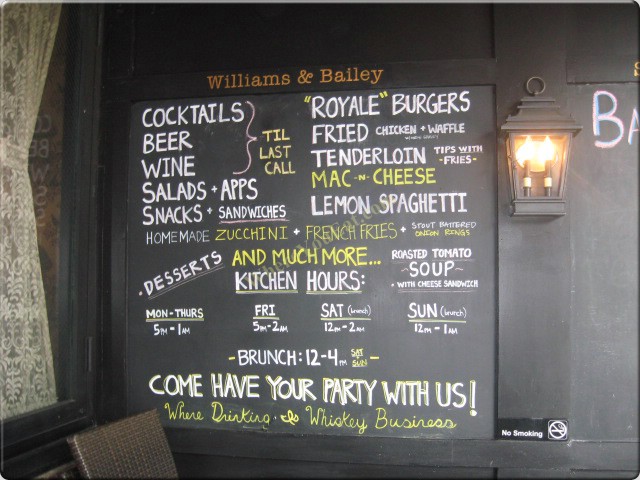 Williams & Bailey
COCKTAILS
BEER
WINE
TIL
LAST
CALL
SALADS + APPS
SNACKS + SANDWICHES
"ROYALE" BURGERS
FRIED CHICKEN + WAFFLE
TENDERLOIN TIPS WITH -FRIES-
MAC-N-CHEESE
LEMON SPAGHETTI
HOMEMADE ZUCCHINI + FRENCH FRIES + STOUT BATTERED ONION RINGS
.DESSERTS
AND MUCH MORE...
ROASTED TOMATO
SOUP
+ WITH CHEESE SANDWICH
KITCHEN HOURS:
MON-THURS
5PM-1AM
FRI
5PM-2AM
SAT (brunch)
12PM-2AM
SUN (brunch)
12PM-1AM
-BRUNCH: 12-4PM SAT SUN-
COME HAVE YOUR PARTY WITH US!
Where Drinking is Whiskey Business
BA
No Smoking